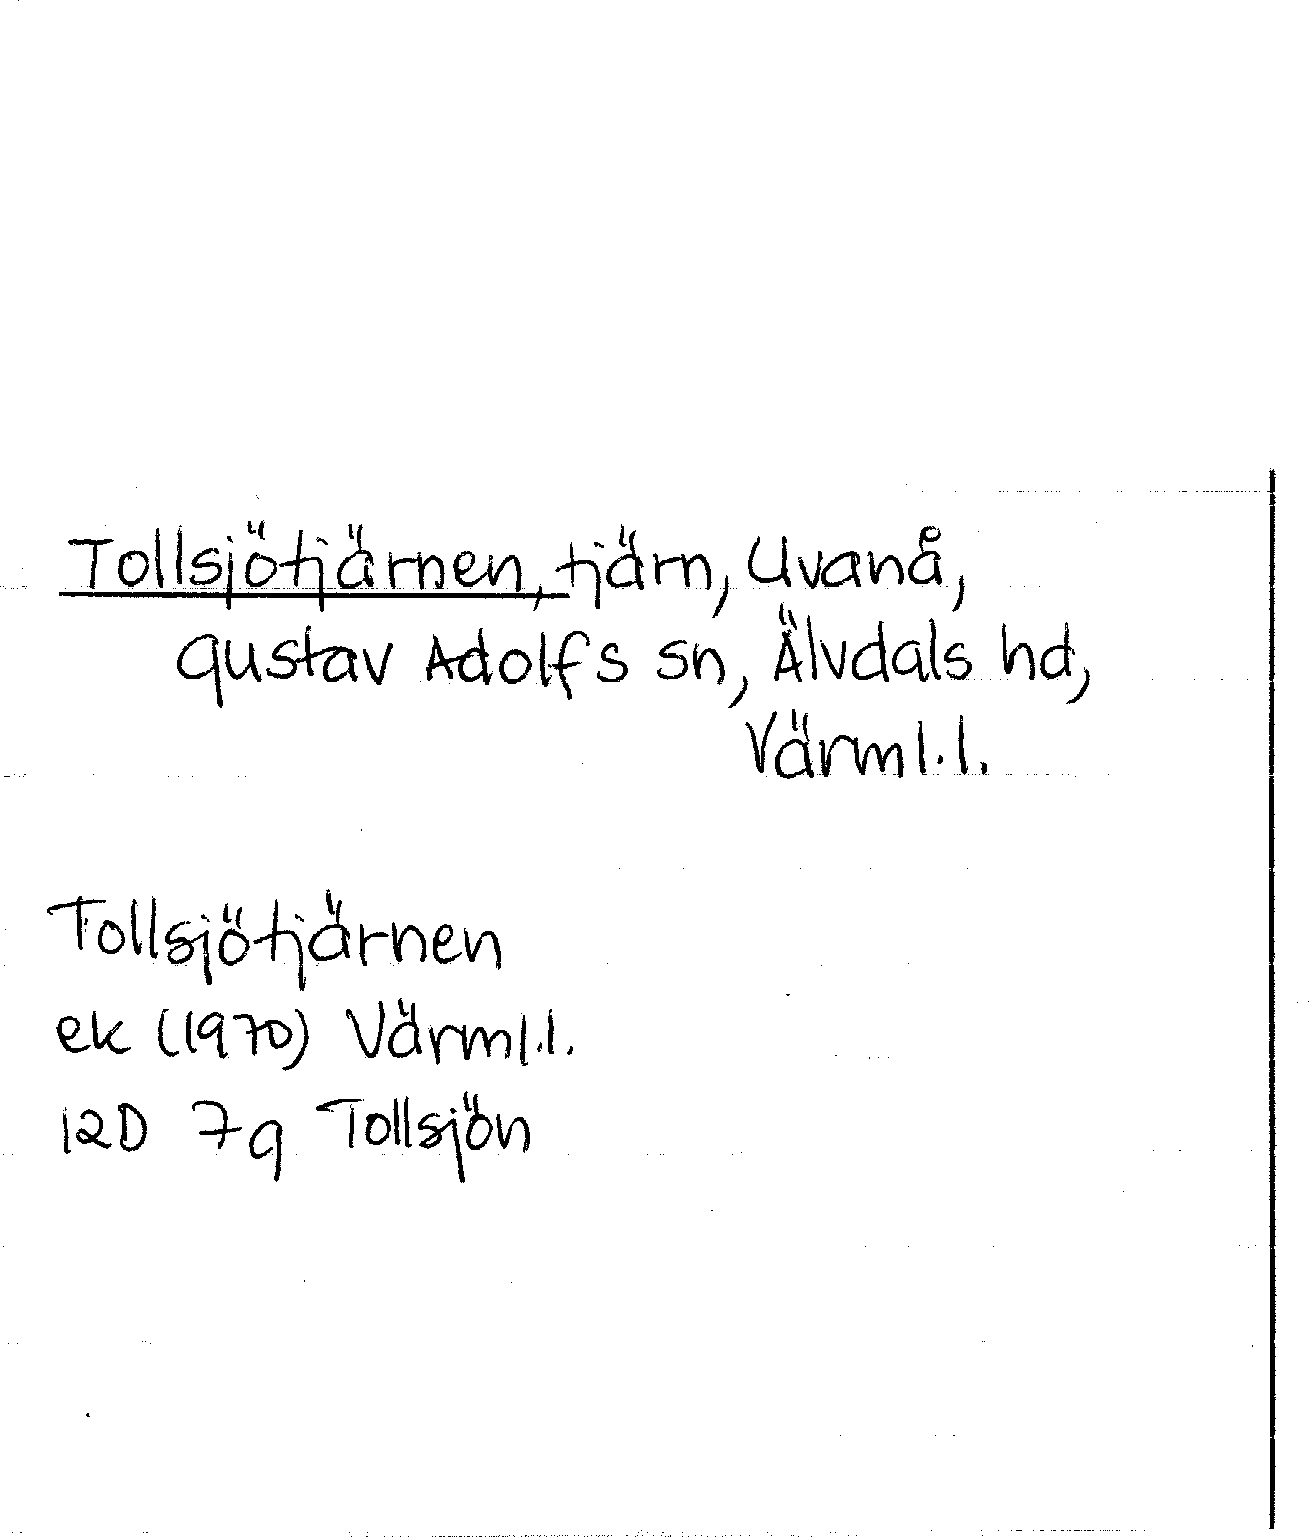 Tollsjötjärnen, tjärn, Uvanå,
Gustav Adolfs sn, Älvdals hd,
Värml.l.
Tollsjötjärnen
ek (1970) Värml.l.
12D 7g Tollsjön